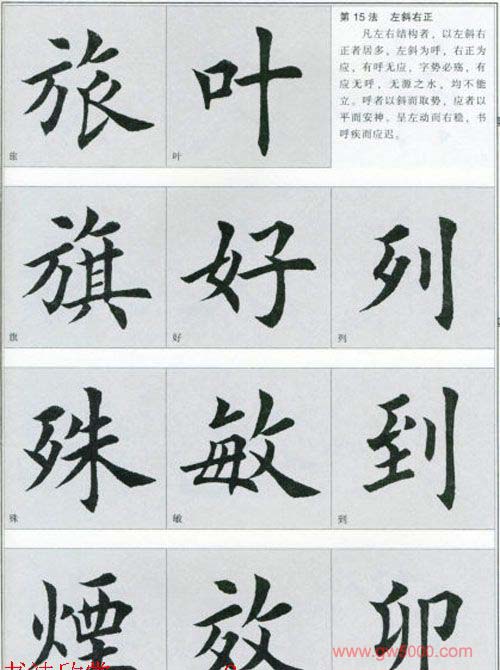 旅 叶
旅 叶
第 15 法 左斜右正
凡左右结构者，以左斜右
正者居多，左斜为呼，右正为
应，有呼无应，字势必疡，有
应无呼，无源之水，均不能
立。呼者以斜而取势，应者以
平而安神。呈左动而右稳，书
呼疾而应迟。
旗 好 列
旗 好 列
殊 敏 到
殊 敏 到
煙 效 卯
www.gw5000.com